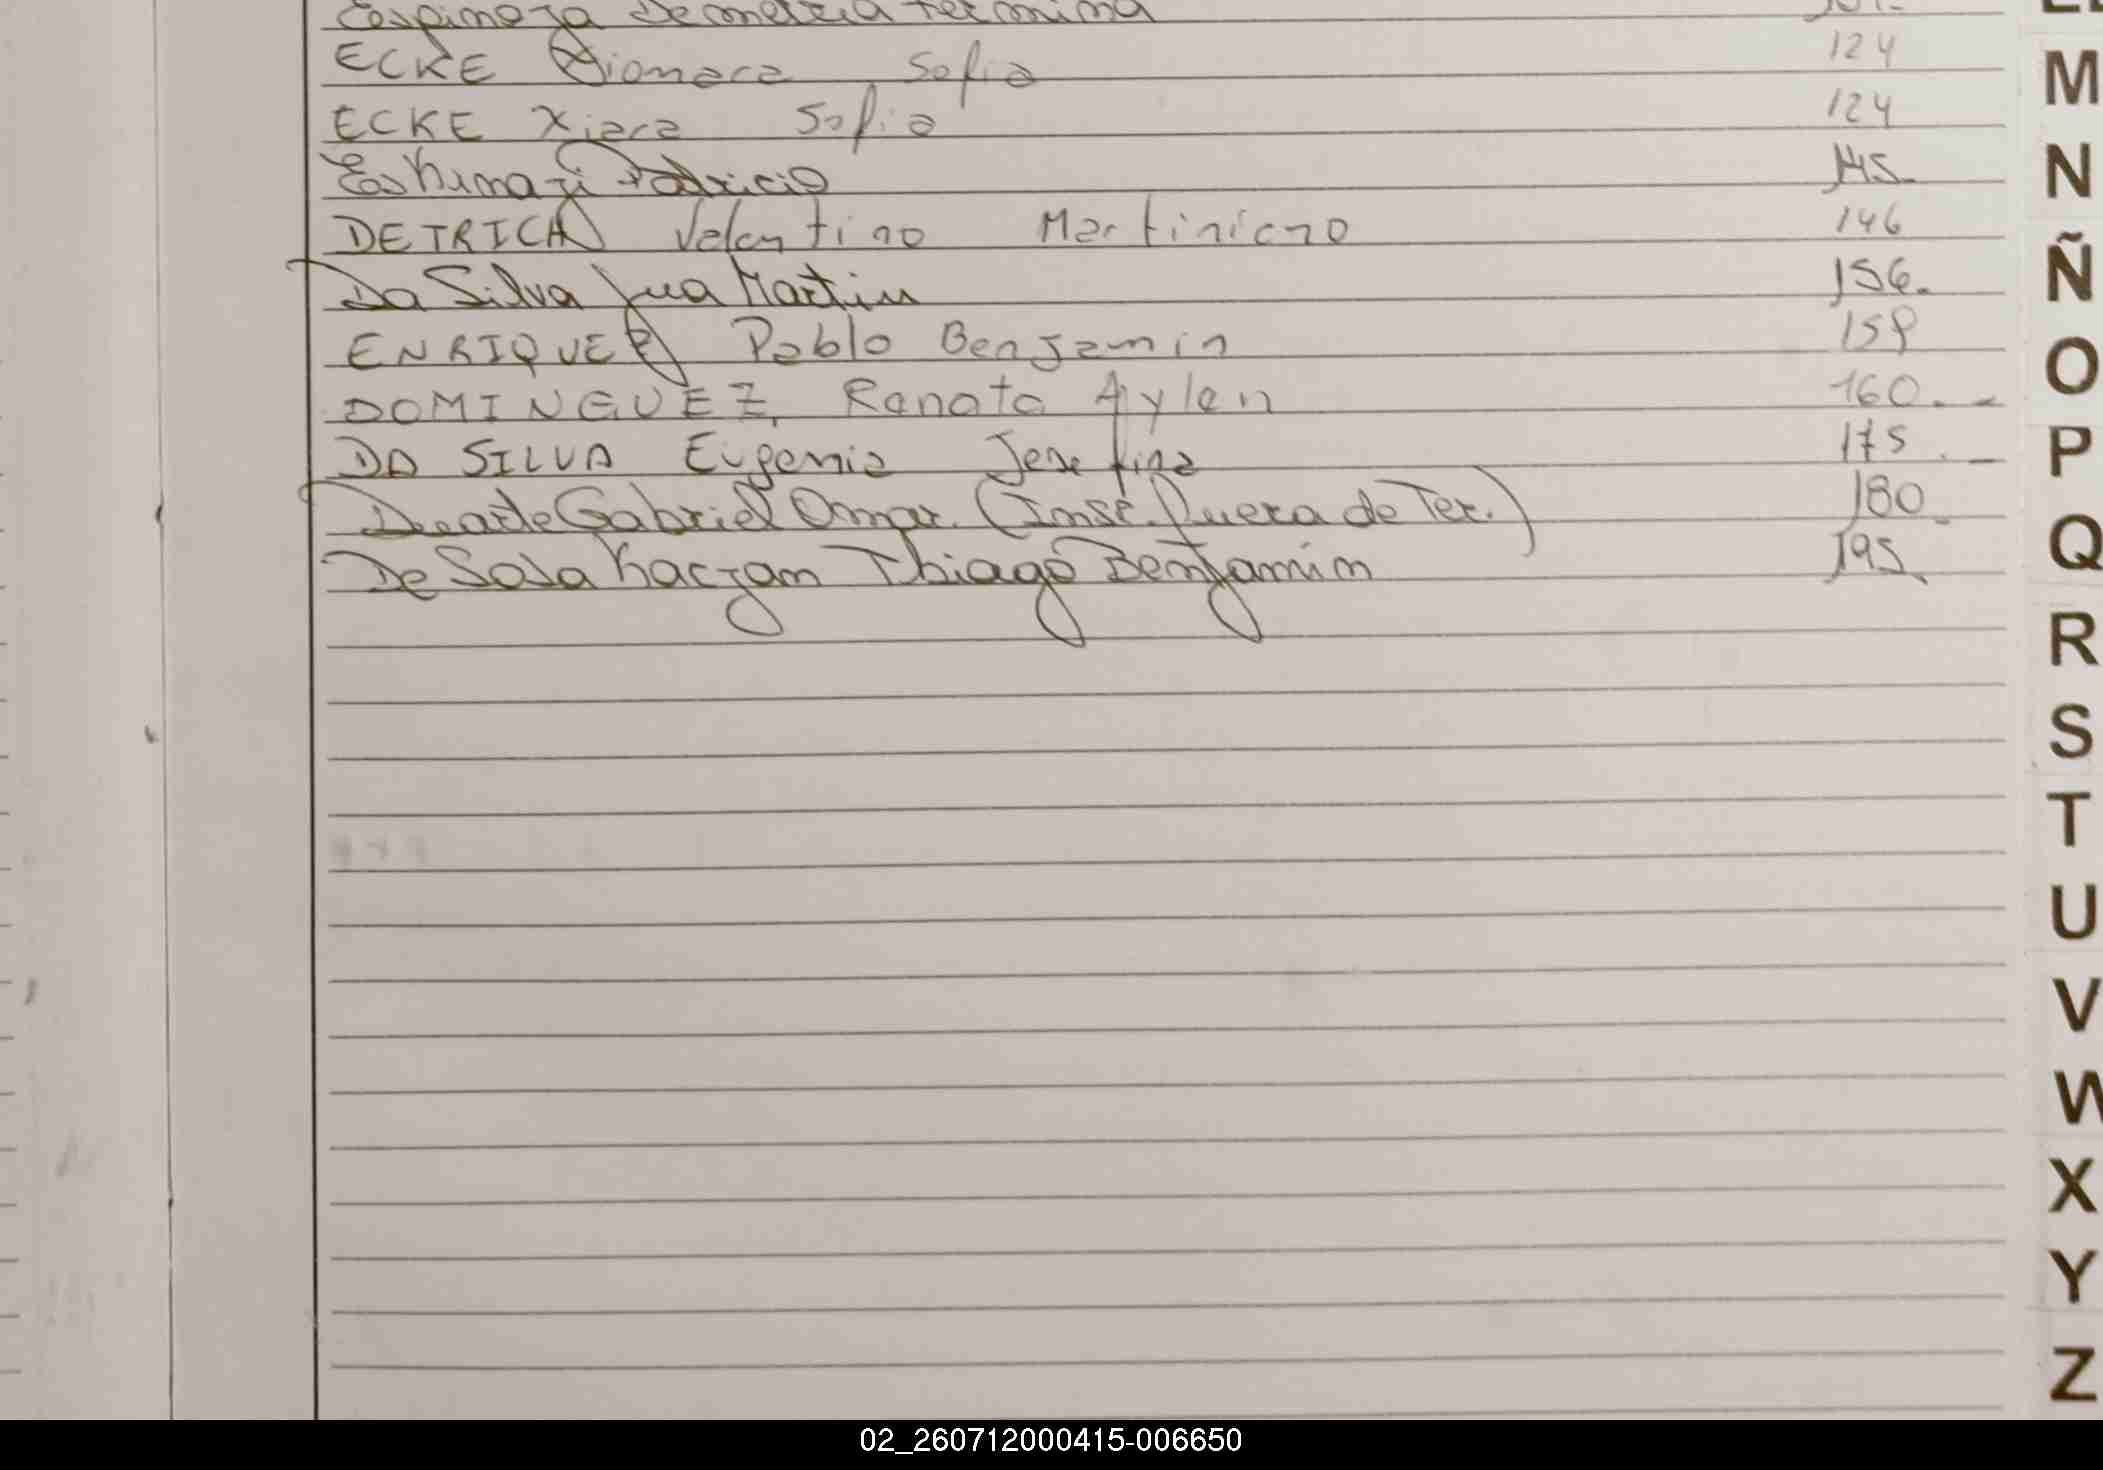 Espinoza Demetria Fermina 101.
ECKE Xiomara Sofia 124
ECKE Xiara Sofia 124
Patricio 145.
DETRICH Valentino Martiniano 146
Da Silva Jua Martin 156.
ENRIQUEZ Pablo Benjamin 159
DOMINGUEZ, Renata Aylen 160.-
DA SILVA Eugenia Josefina 175.-
Duarte Gabriel Omar. (Insc. fuera de Ter.) 180.
De Sosa Thiago Benjamin 195.
M
N
Ñ
O
P
Q
R
S
T
U
V
W
X
Y
Z
02_260712000415-006650